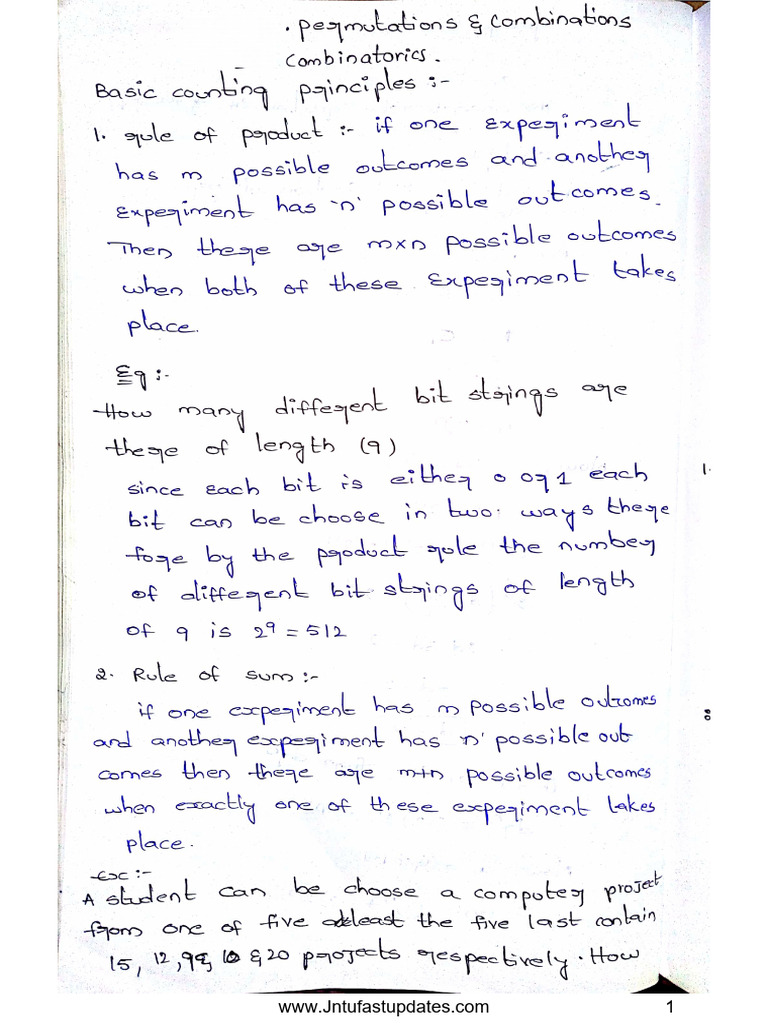 . permutations & combinations
combinatorics.
Basic counting principles :-
1. rule of product :- if one experiment
has m possible outcomes and another
experiment has 'n' possible outcomes.
Then there are m×n possible outcomes
when both of these experiment takes
place.
Eg :-
How many different bit strings are
there of length (9)
since each bit is either 0 or 1 each
bit can be choose in two ways there
fore by the product rule the number
of different bit strings of length
of 9 is 2⁹ = 512
2. Rule of sum :-
if one experiment has m possible outcomes
and another experiment has n' possible out
comes then there are m+n possible outcomes
when exactly one of these experiment takes
place.
Ex :-
A student can be choose a computer project
from one of five atleast the five last contain
15, 12, 9, 10 & 20 projects respectively. How
www.Jntufastupdates.com 1